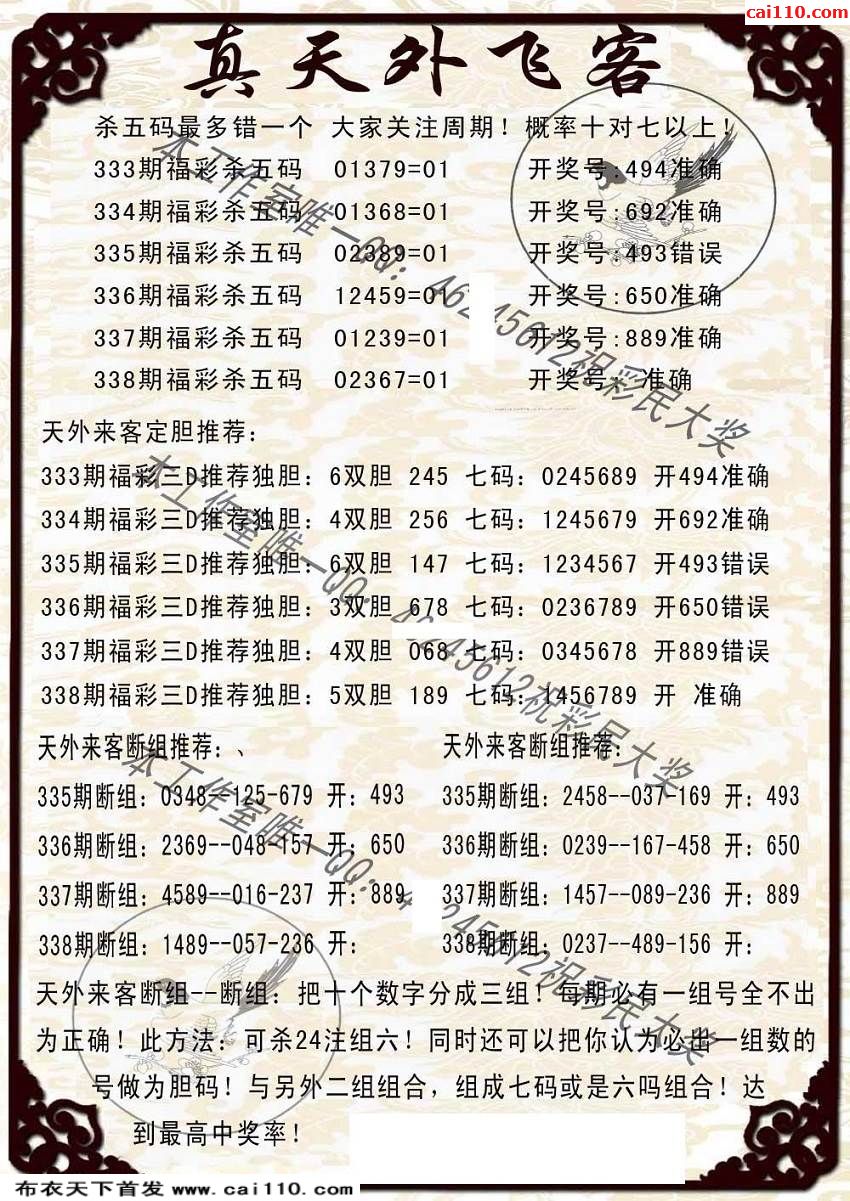 cai110.com
真天外飞客
杀五码最多错一个 大家关注周期！概率十对七以上！
333期福彩杀五码 01379=01 开奖号:494准确
334期福彩杀五码 01368=01 开奖号:692准确
335期福彩杀五码 02389=01 开奖号:493错误
336期福彩杀五码 12459=01 开奖号:650准确
337期福彩杀五码 01239=01 开奖号:889准确
338期福彩杀五码 02367=01 开奖号: 准确
天外来客定胆推荐：
333期福彩三D推荐独胆：6双胆 245 七码：0245689 开494准确
334期福彩三D推荐独胆：4双胆 256 七码：1245679 开692准确
335期福彩三D推荐独胆：6双胆 147 七码：1234567 开493错误
336期福彩三D推荐独胆：3双胆 678 七码：0236789 开650错误
337期福彩三D推荐独胆：4双胆 068 七码：0345678 开889错误
338期福彩三D推荐独胆：5双胆 189 七码：1456789 开 准确
天外来客断组推荐：、 天外来客断组推荐：
335期断组：0348--125-679 开：493 335期断组：2458--037-169 开：493
336期断组：2369--048-157 开：650 336期断组：0239--167-458 开：650
337期断组：4589--016-237 开：889 337期断组：1457--089-236 开：889
338期断组：1489--057-236 开： 338期断组：0237--489-156 开：
天外来客断组--断组：把十个数字分成三组！每期必有一组号全不出
为正确！此方法：可杀24注组六！同时还可以把你认为必出一组数的
号做为胆码！与另外二组组合，组成七码或是六吗组合！达
到最高中奖率！
本工作室唯一QQ：46245612祝彩民大奖
本工作室唯一QQ：46245612祝彩民大奖
本工作室唯一QQ：46245612祝彩民大奖
布衣天下首发 www.cai110.com